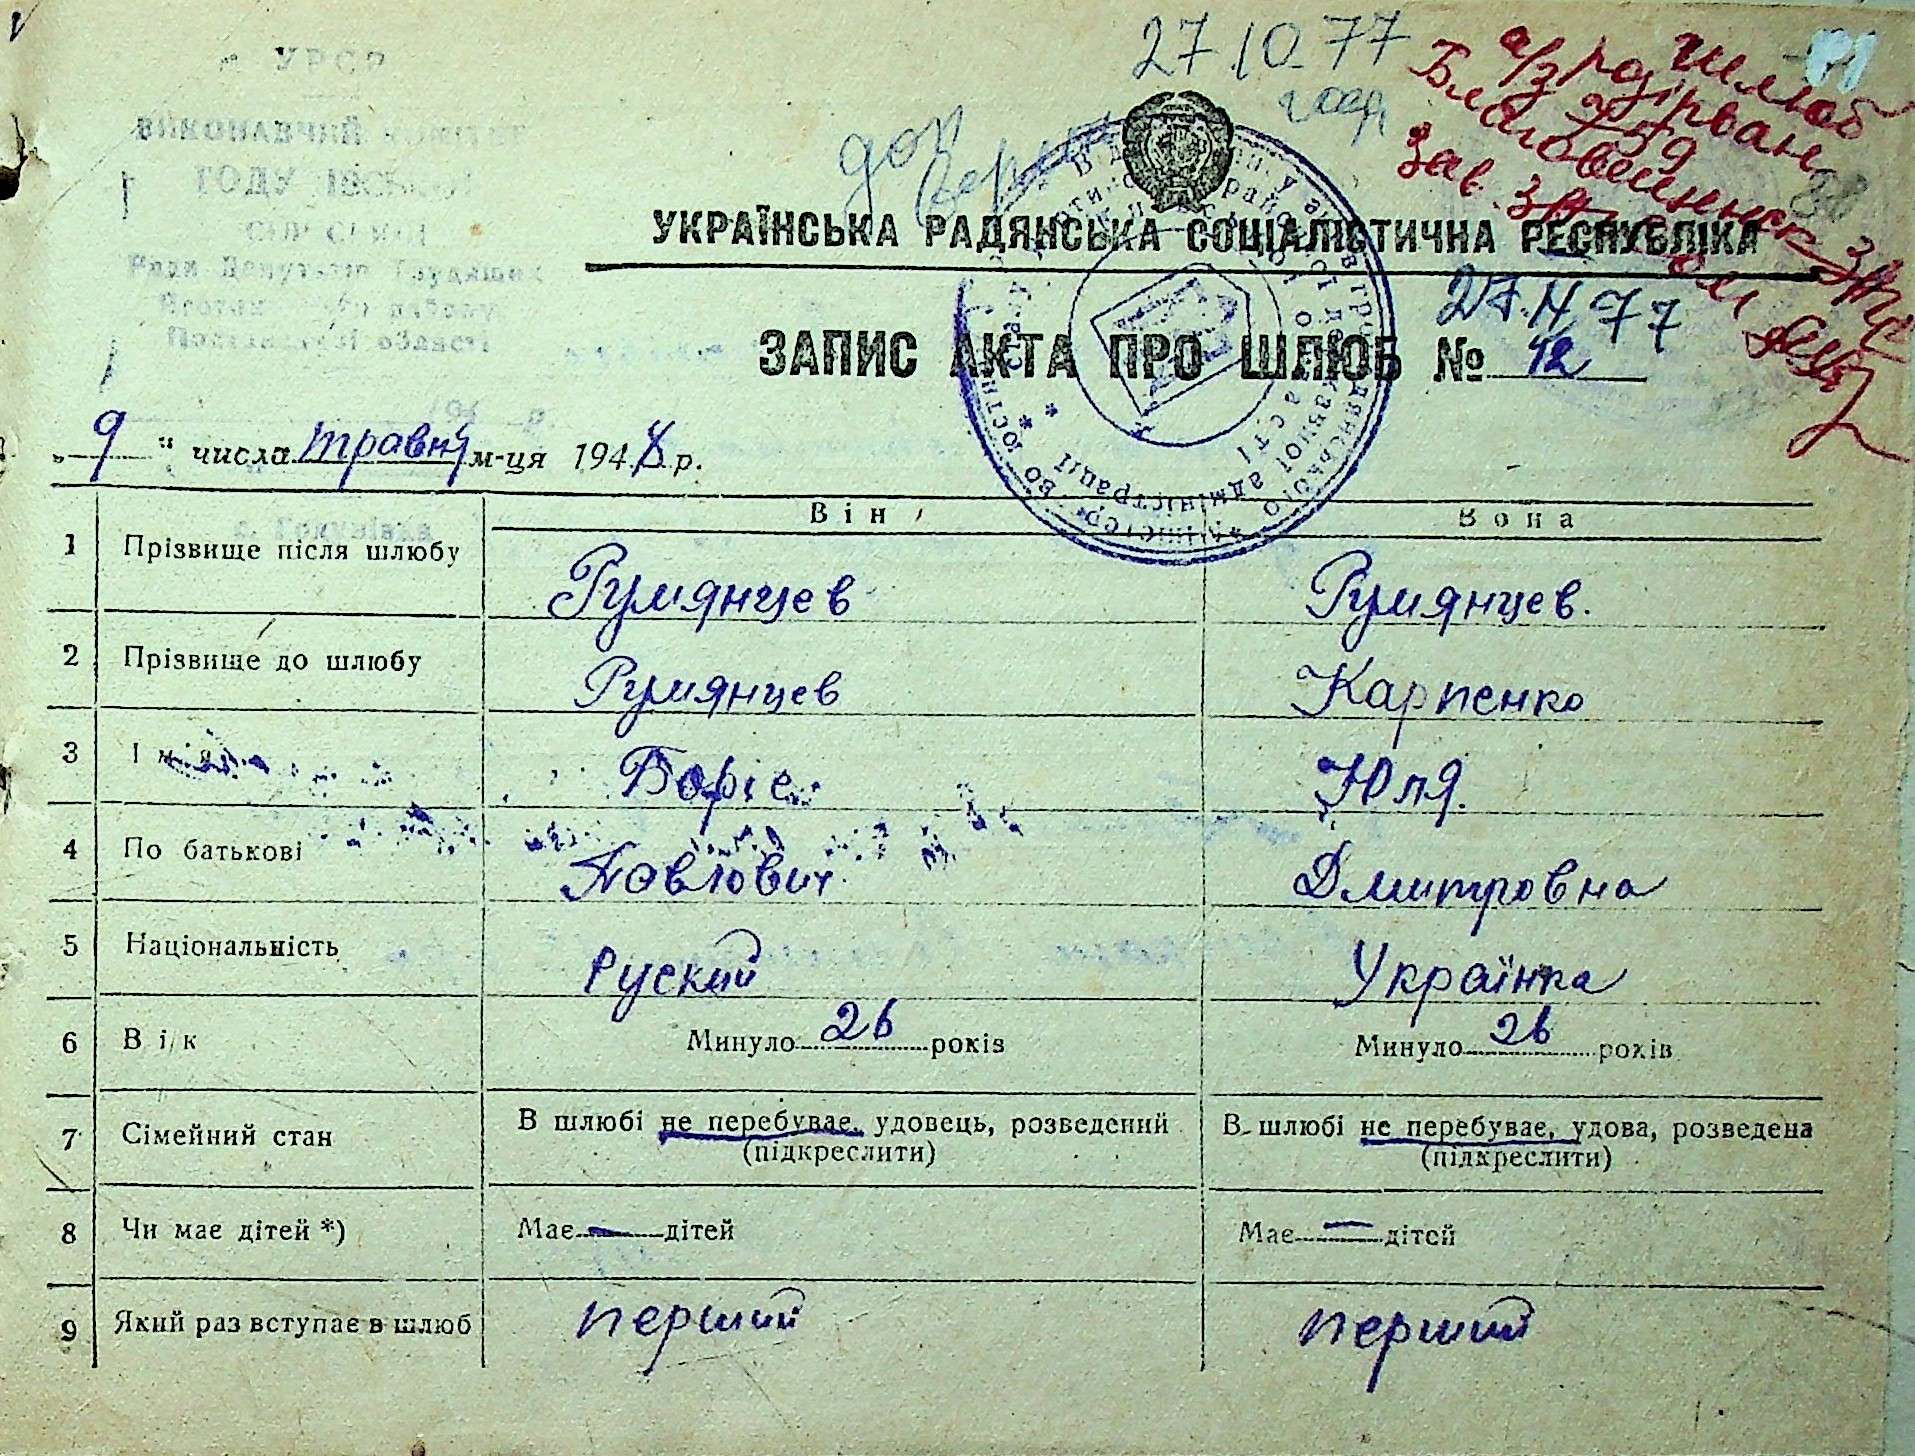 27.10.77
шлюб
а/з розірван
759
Зав. Загсом
УРСР
ВИКОНАВЧИЙ КОМІТЕТ
Ради Депутатів Трудящих
Полтавської області
УКРАЇНСЬКА РАДЯНСЬКА СОЦІАЛІСТИЧНА РЕСПУБЛІКА
27.IV.77
ЗАПИС АКТА ПРО ШЛЮБ № 12
„ 9 “ числа травня м-ця 1948 р.
Він Вона
1 Прізвище після шлюбу Румянцев Румянцев.
2 Прізвище до шлюбу Румянцев Карпенко
3 Імʼя Боріс Юля.
4 По батькові Павлович Дмитровна
5 Національність Руский Українка
6 Вік Минуло 26 років Минуло 26 років
7 Сімейний стан В шлюбі не перебуває, удовець, розведений В шлюбі не перебуває, удова, розведена
(підкреслити) (підкреслити)
8 Чи має дітей *) Має — дітей Має — дітей
9 Який раз вступає в шлюб перший перший